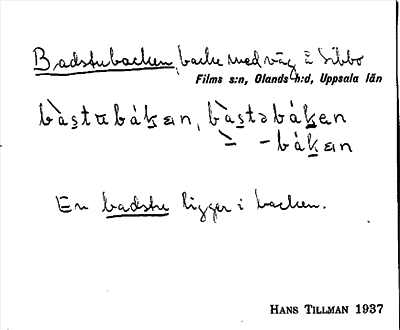 Badstubacken, backe med väg å Sibbo
Films s:n, Olands h:d, Uppsala län
bàstubák̲en, bàstəbák̲en
– -bák̲en
En badstu ligger i backen.
HANS TILLMAN 1937